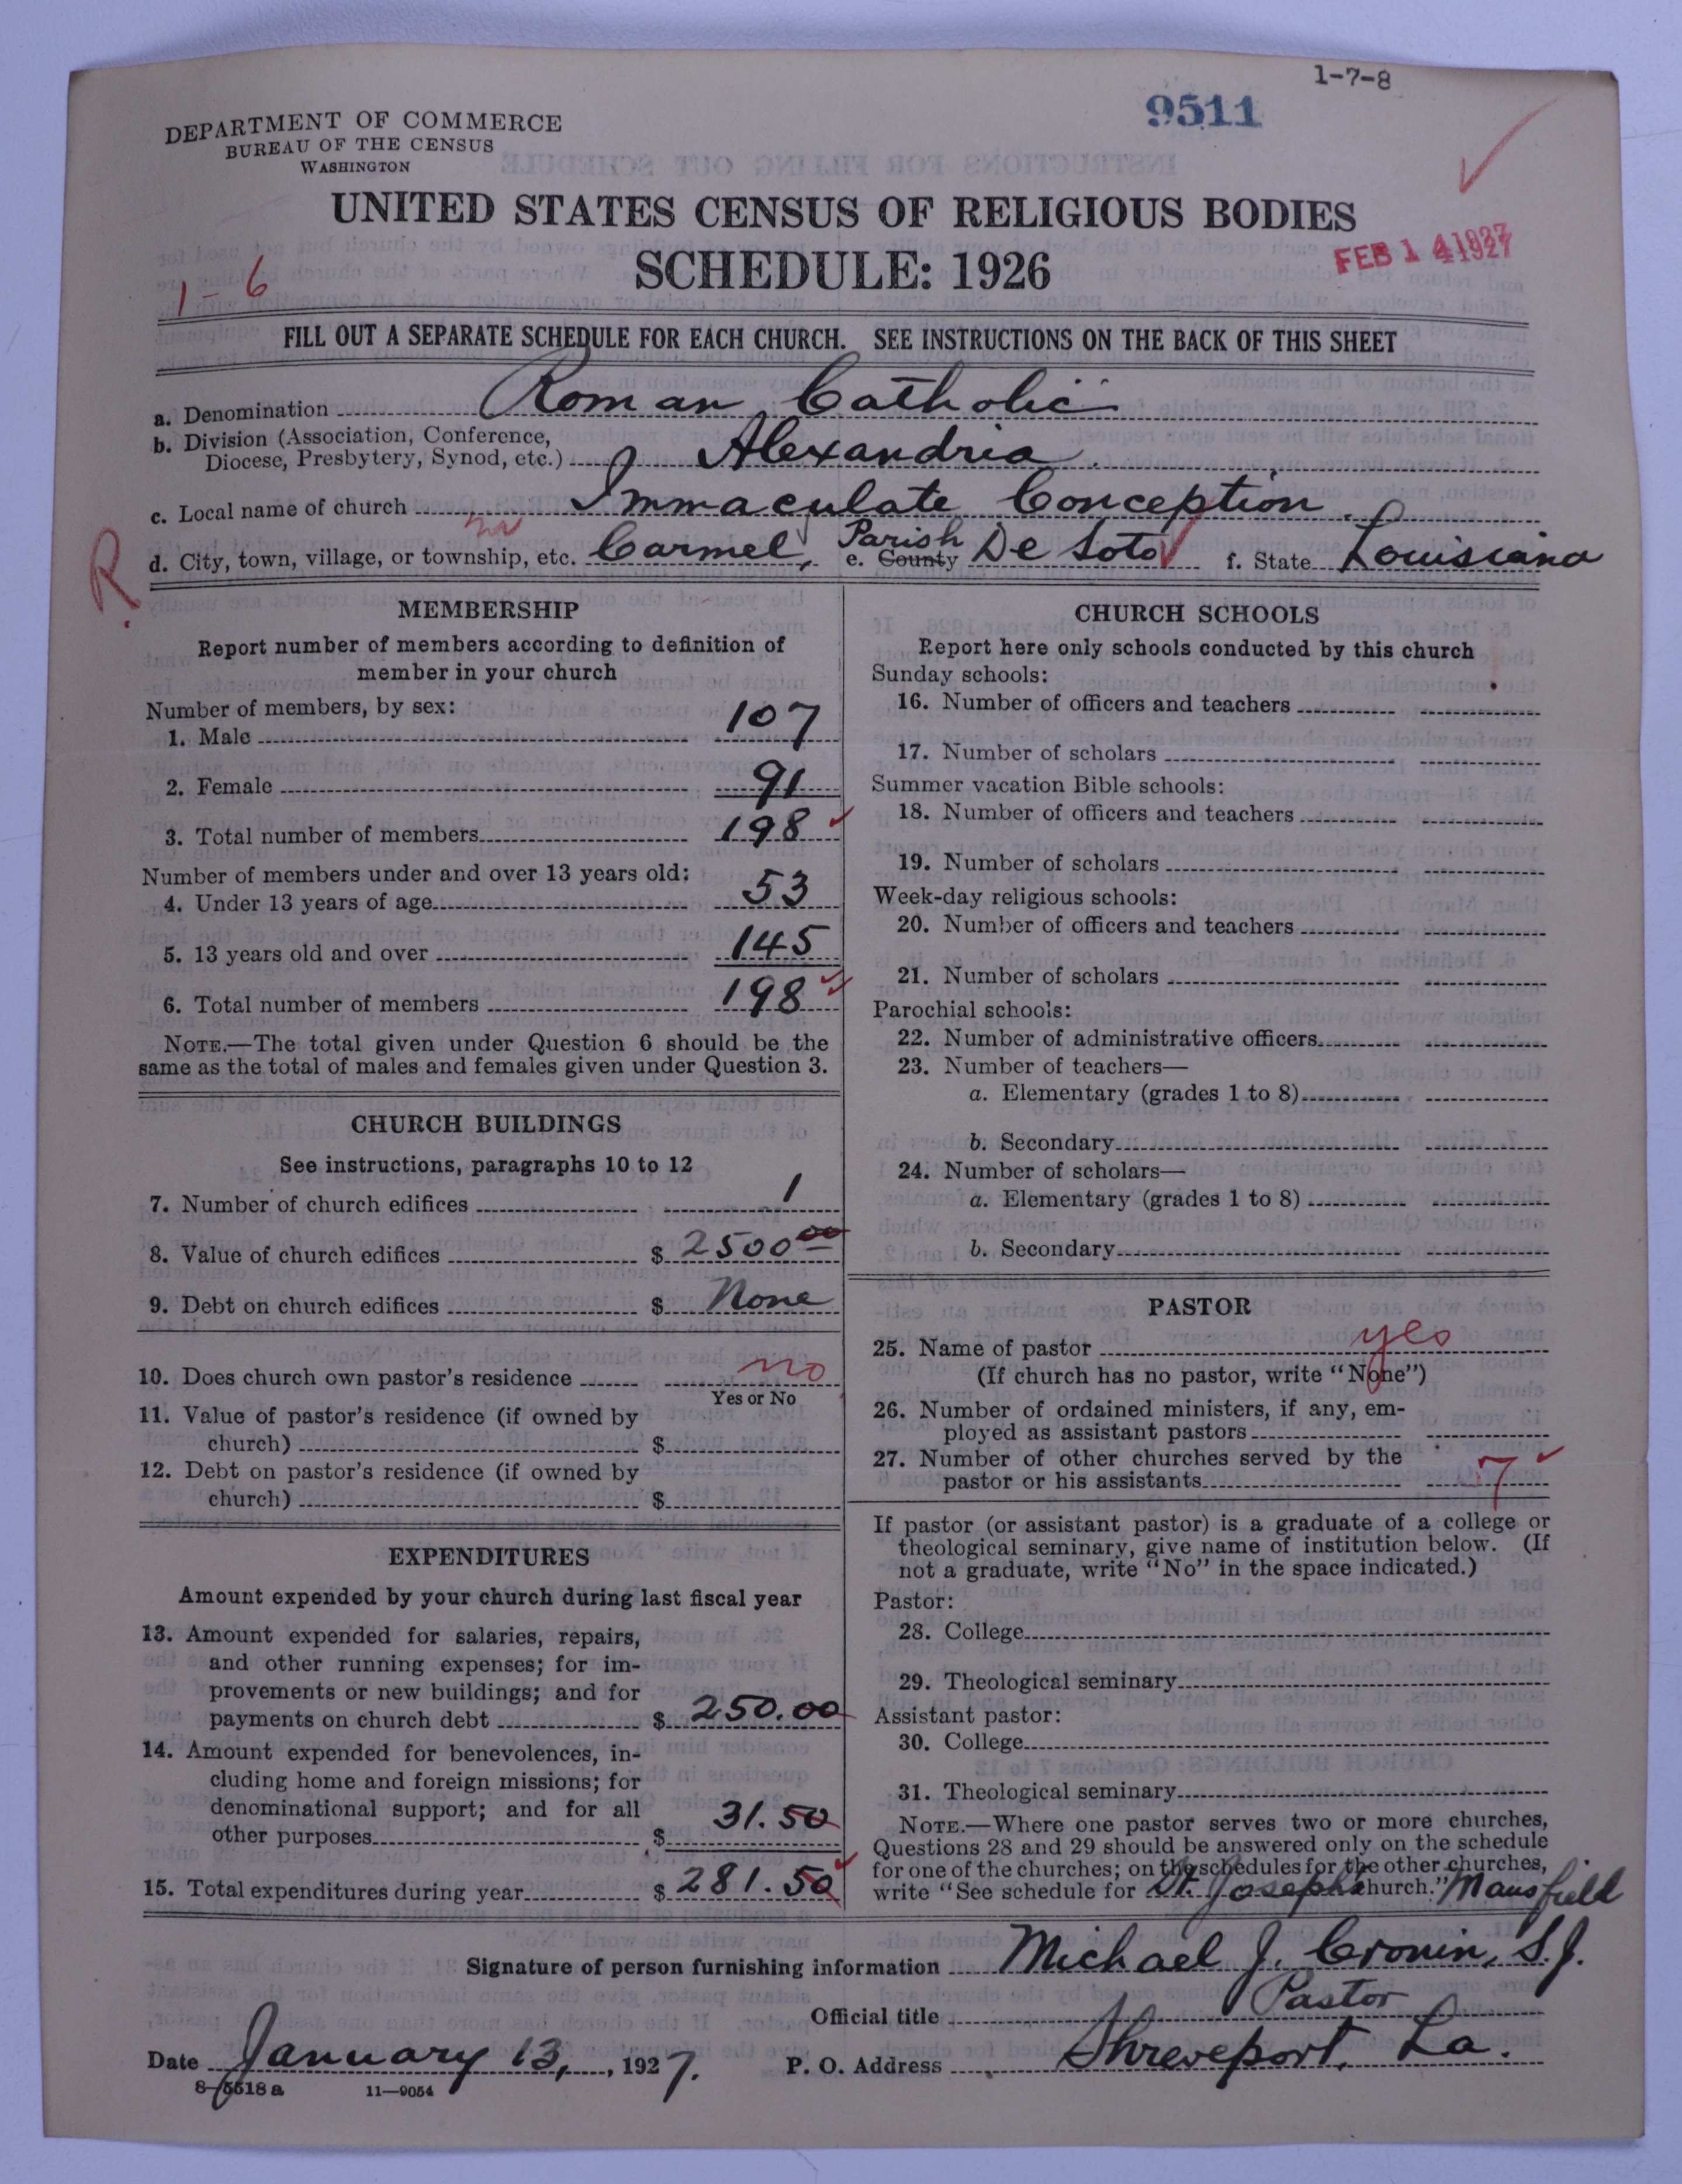 1-7-8
9511
DEPARTMENT OF COMMERCE
BUREAU OF THE CENSUS
WASHINGTON
UNITED STATES CENSUS OF RELIGIOUS BODIES
SCHEDULE: 1926
FEB 14 1927
1-6
FILL OUT A SEPARATE SCHEDULE FOR EACH CHURCH. SEE INSTRUCTIONS ON THE BACK OF THIS SHEET
a. Denomination Roman Catholic
b. Division (Association, Conference,
Diocese, Presbytery, Synod, etc.) Alexandria
c. Local name of church Immaculate Conception.
R
d. City, town, village, or township, etc. Carmel, e. County Parish De Soto f. State Louisiana
MEMBERSHIP
Report number of members according to definition of
member in your church
Number of members, by sex:
1. Male 107
2. Female 91
3. Total number of members 198
Number of members under and over 13 years old:
4. Under 13 years of age 53
5. 13 years old and over 145
6. Total number of members 198
NOTE.—The total given under Question 6 should be the
same as the total of males and females given under Question 3.
CHURCH BUILDINGS
See instructions, paragraphs 10 to 12
7. Number of church edifices 1
8. Value of church edifices $ 2500 00
9. Debt on church edifices $ None
10. Does church own pastor's residence no
Yes or No
11. Value of pastor's residence (if owned by
church) $
12. Debt on pastor's residence (if owned by
church) $
EXPENDITURES
Amount expended by your church during last fiscal year
13. Amount expended for salaries, repairs,
and other running expenses; for im-
provements or new buildings; and for
payments on church debt $ 250.00
14. Amount expended for benevolences, in-
cluding home and foreign missions; for
denominational support; and for all
other purposes $ 31.50
15. Total expenditures during year $ 281.50
CHURCH SCHOOLS
Report here only schools conducted by this church
Sunday schools:
16. Number of officers and teachers
17. Number of scholars
Summer vacation Bible schools:
18. Number of officers and teachers
19. Number of scholars
Week-day religious schools:
20. Number of officers and teachers
21. Number of scholars
Parochial schools:
22. Number of administrative officers
23. Number of teachers—
a. Elementary (grades 1 to 8)
b. Secondary
24. Number of scholars—
a. Elementary (grades 1 to 8)
b. Secondary
PASTOR
25. Name of pastor yes
(If church has no pastor, write "None")
26. Number of ordained ministers, if any, em-
ployed as assistant pastors
27. Number of other churches served by the
pastor or his assistants 7
If pastor (or assistant pastor) is a graduate of a college or
theological seminary, give name of institution below. (If
not a graduate, write "No" in the space indicated.)
Pastor:
28. College
29. Theological seminary
Assistant pastor:
30. College
31. Theological seminary
NOTE.—Where one pastor serves two or more churches,
Questions 28 and 29 should be answered only on the schedule
for one of the churches; on the schedules for the other churches,
write "See schedule for St. Joseph's church." Mansfield
Signature of person furnishing information Michael J. Cronin, S.J.
Official title Pastor
Date January 13, 1927. P. O. Address Shreveport, La.
8-5518a 11-9054